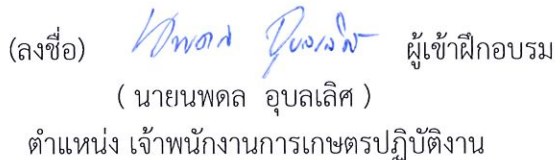 (ลงชื่อ) นพดล อุบลเลิศ ผู้เข้าฝึกอบรม
( นายนพดล อุบลเลิศ )
ตำแหน่ง เจ้าพนักงานการเกษตรปฏิบัติงาน